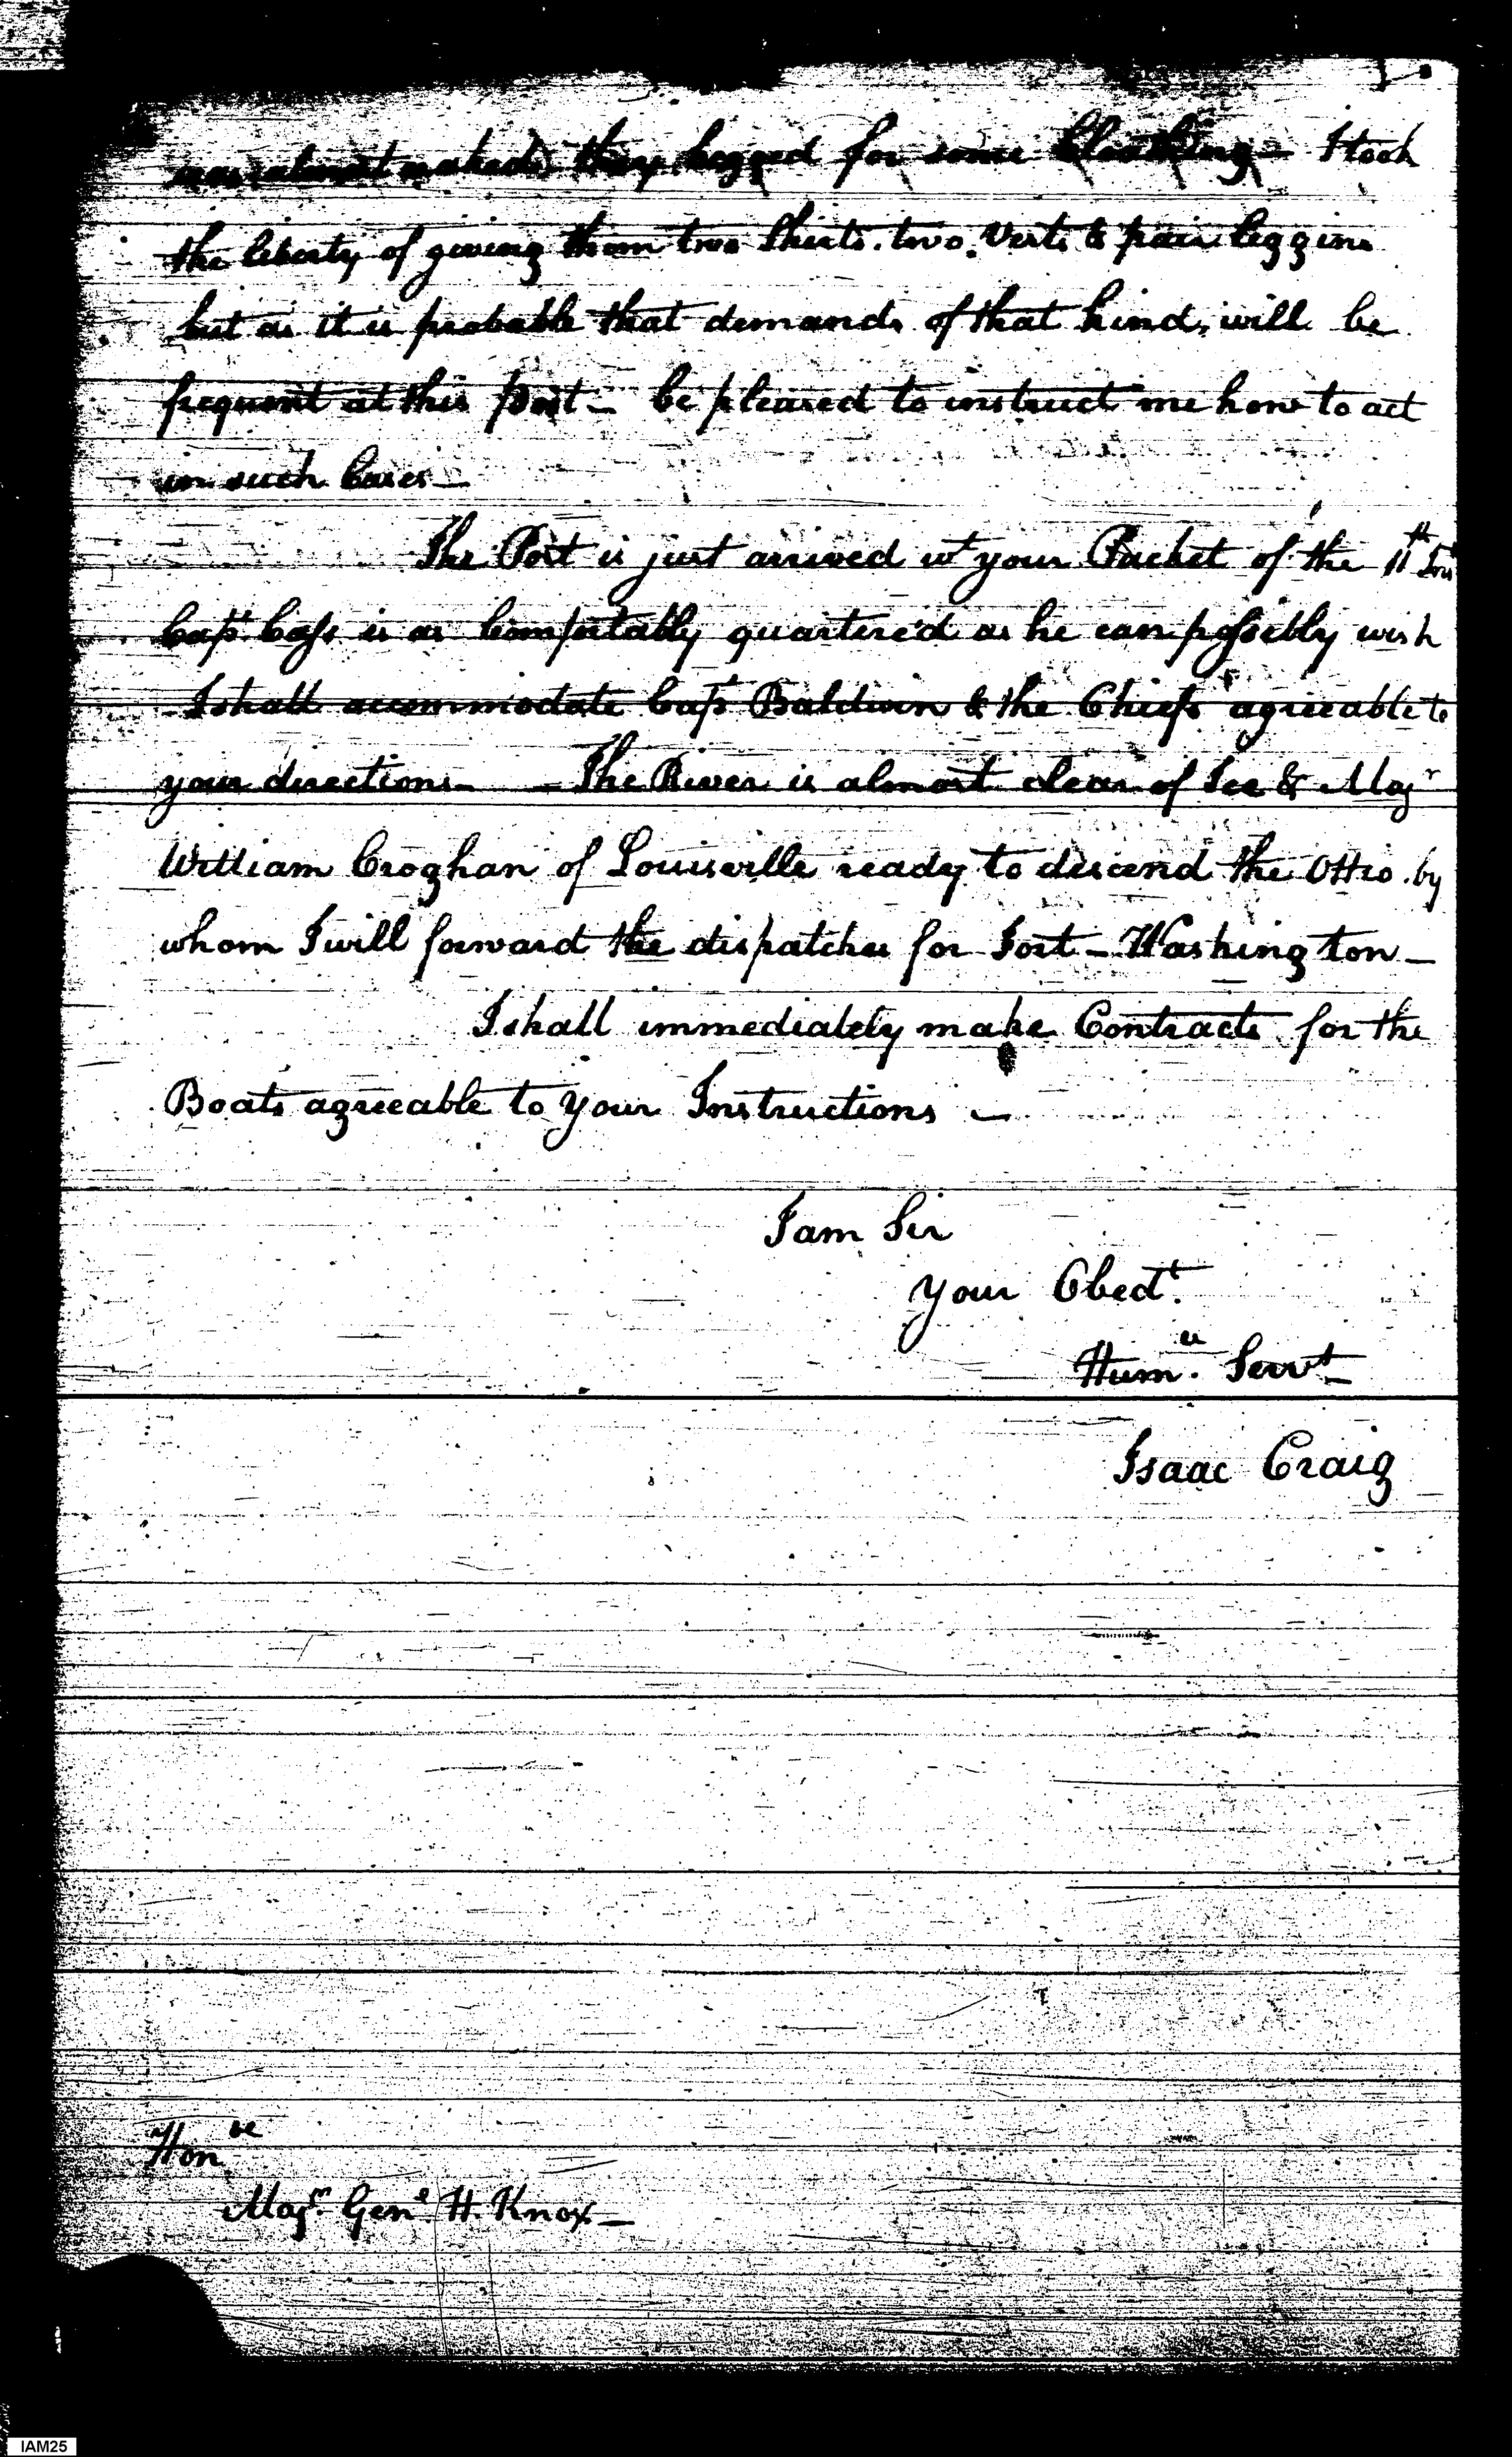 was almost naked, they begged for some Cloathing – I took
the liberty of giving them two Shirts. two. Vests & pair leggins
but as it is probable that demands of that kind, will be
frequent at this Post – be pleased to instruct me how to act
in such Cases –
The Post is just arrived wt your Packet of the 11th
Capt Cass is as Comfortably quartered as he can possibly wish
I shall accommodate Capt Baldwin & the Chiefs agreeable to
your directions – – The River is almost clear of Ice & Majr
William Croghan of Louisville ready to descend the Ohio. by
whom I will forward the dispatches for Fort – Washington –
I shall immediately make Contracts for the
Boats agreeable to your Instructions –
I am Sir
your Obedt.
Hum. Servt –
Isaac Craig
Honbe
Majr Genl H. Knox –
IAM25